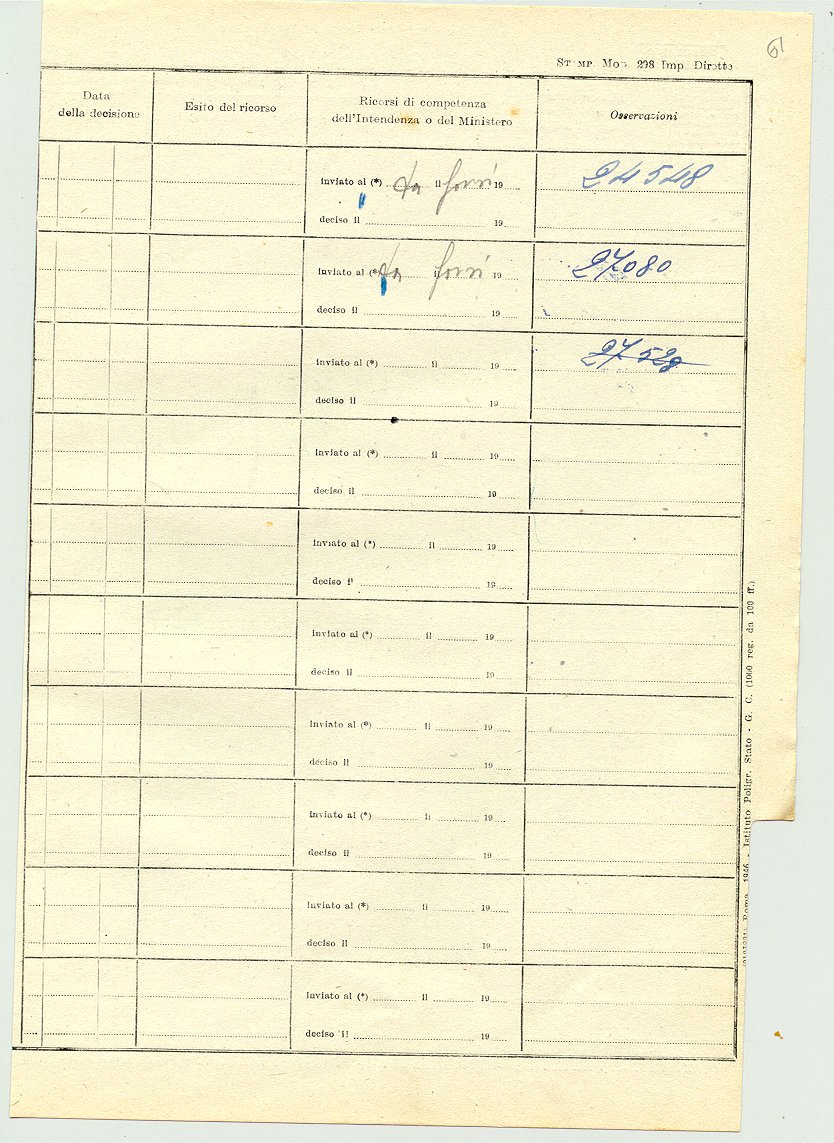 61
STAMP. MOD. 298 Imp Dirette
Data
della decisione
Esito del ricorso
Ricorsi di competenza
dell'Intendenza o del Ministero
Osservazioni
inviato al (*) il 19
24548
deciso il 19
inviato al (*) il 19
27080
deciso il 19
inviato al (*) il 19
27528
deciso il 19
inviato al (*) il 19
deciso il 19
inviato al (*) il 19
deciso il 19
inviato al (*) il 19
deciso il 19
inviato al (*) il 19
deciso il 19
inviato al (*) il 19
deciso il 19
inviato al (*) il 19
deciso il 19
inviato al (*) il 19
deciso il 19
Roma, 1946 - Istituto Poligr. Stato - G. C. (1000 reg. da 100 ff.)